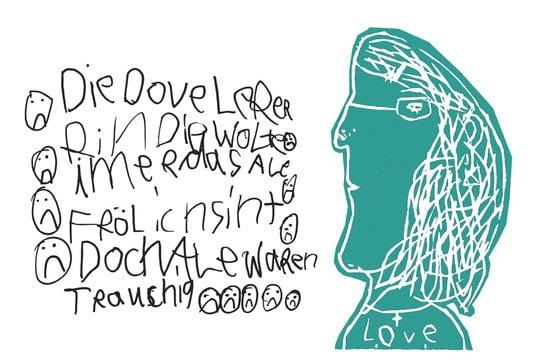 Die Dove LeRer
Rin Die WOLTe
imer das ALe
FRÖLich sint
Doch ALe waren
Trauchig
Love